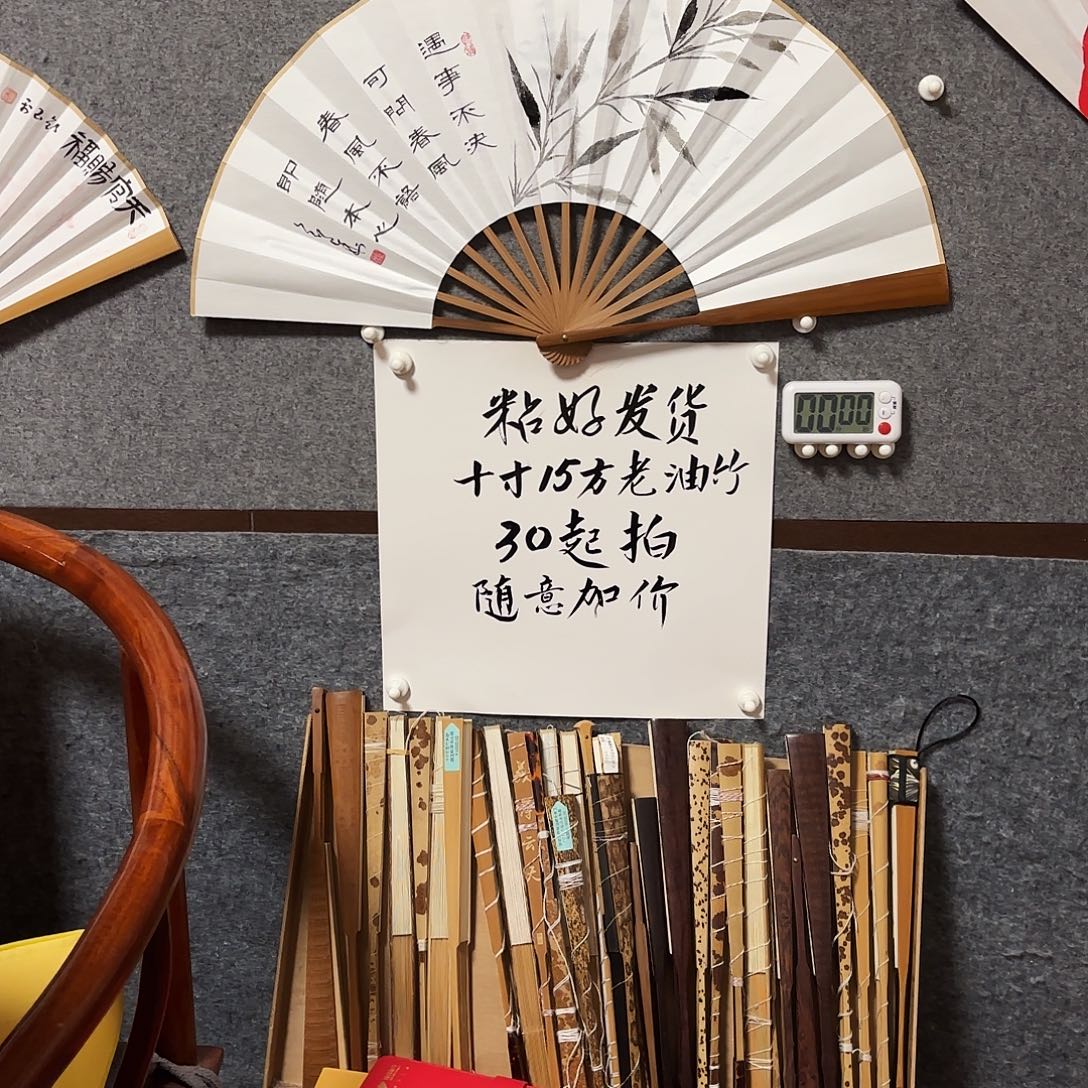 遇事不決
可問春風
春風不語
即隨本心
天官賜福
粘好发货
十寸15方老油竹
30起拍
随意加价
00:00